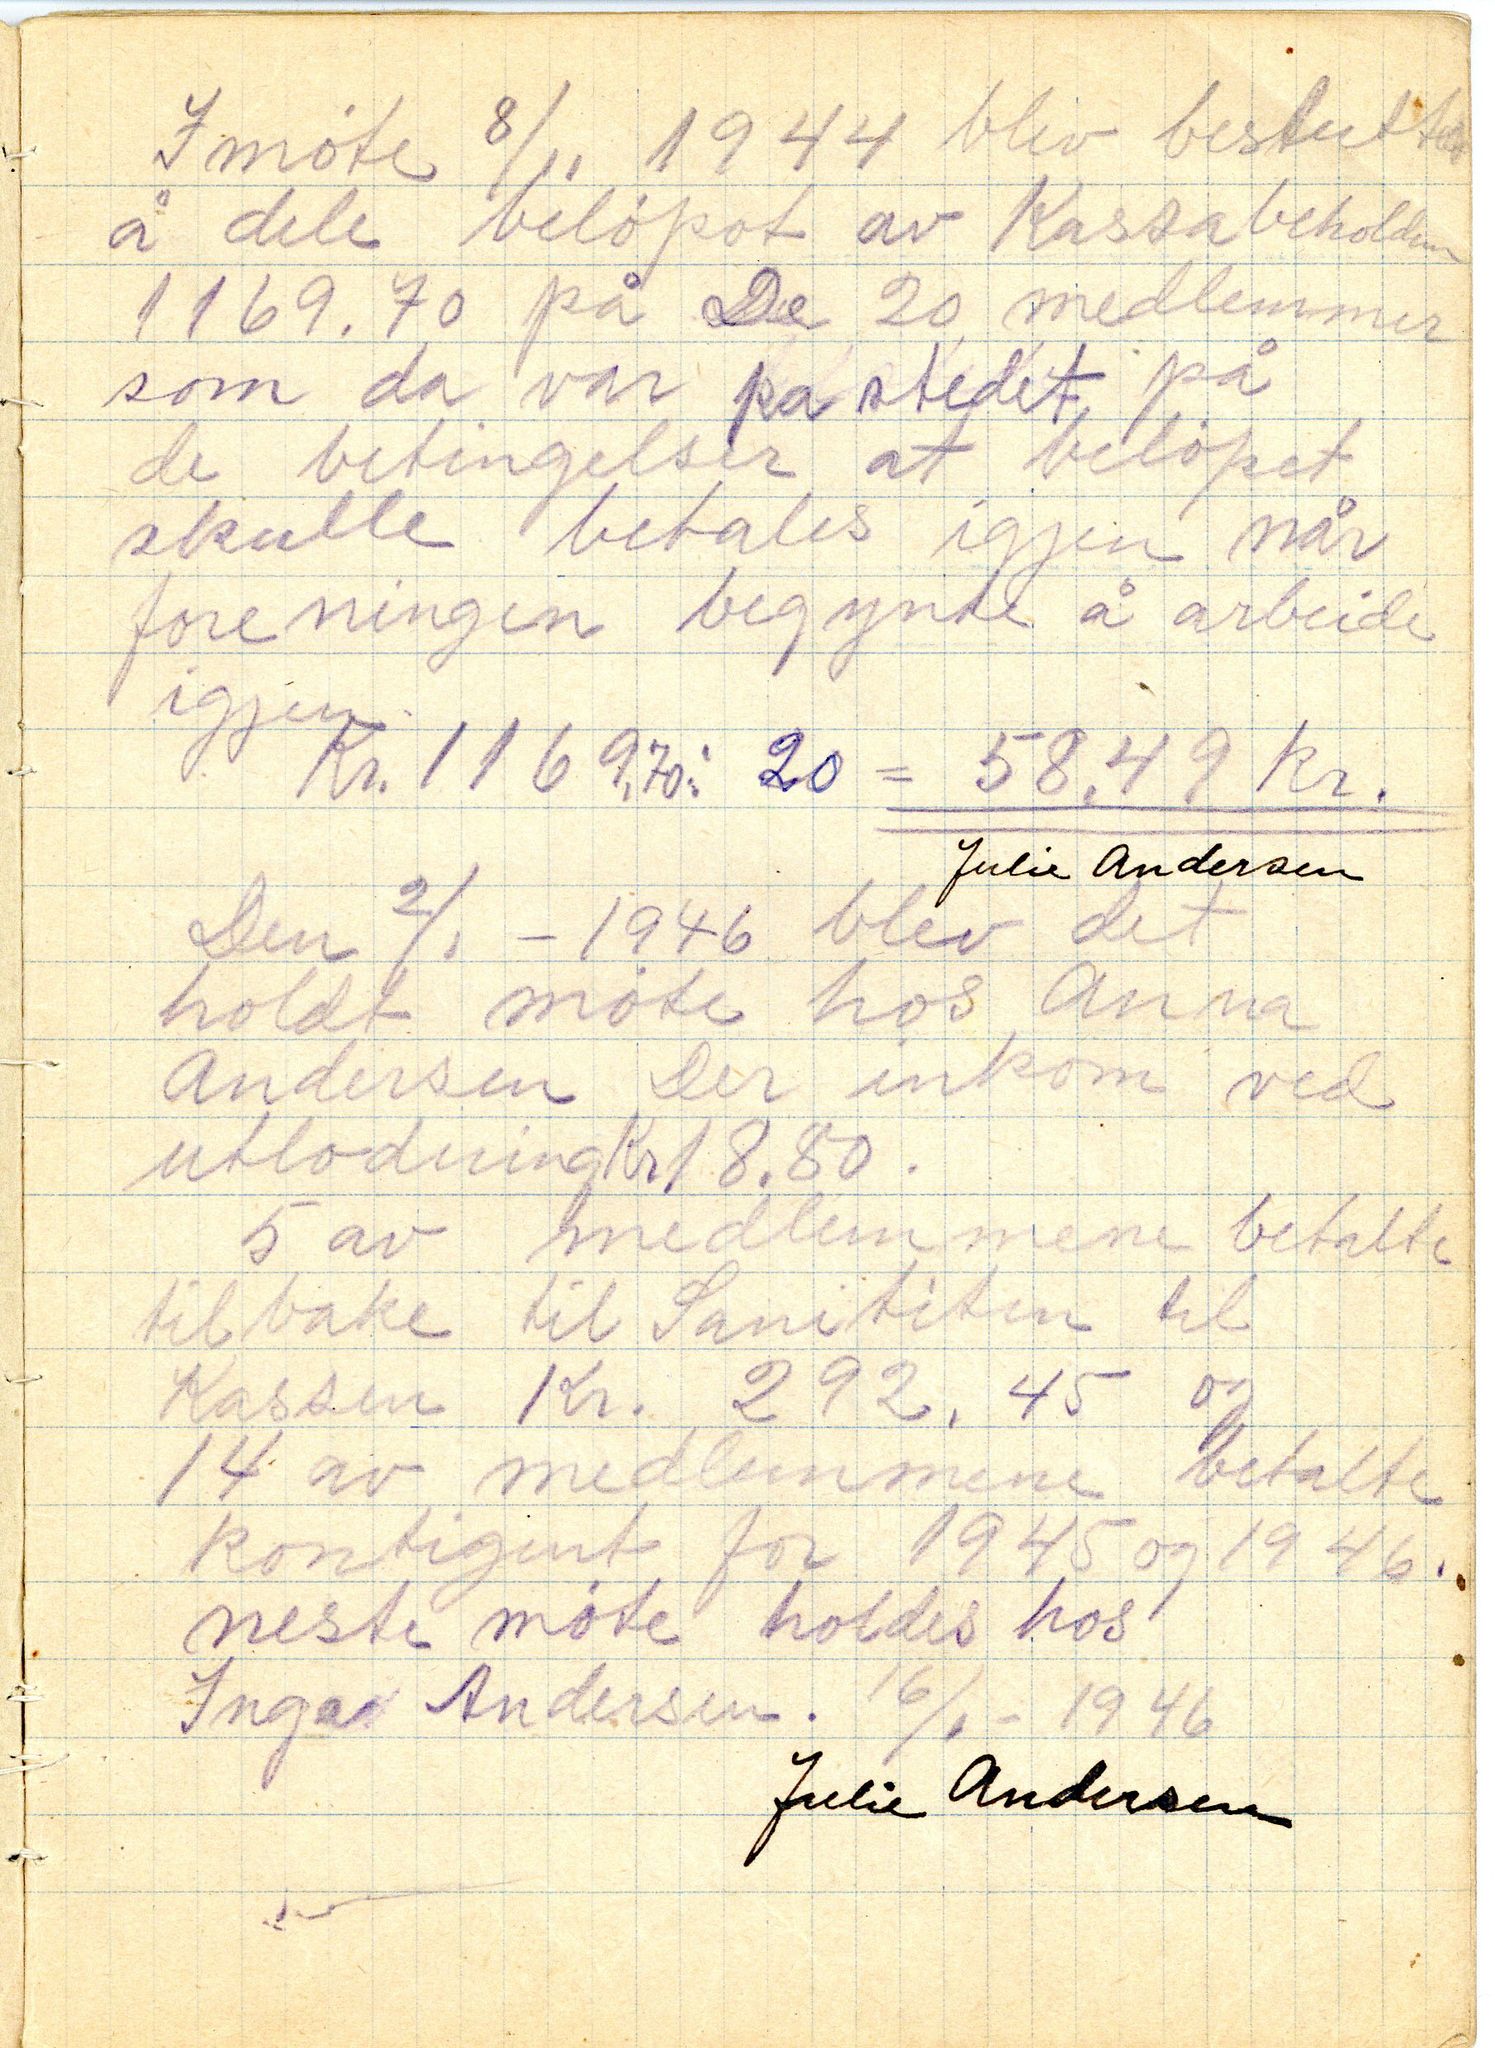 I møte 8/11 1944 blev besluttet
å dele beløpot av Kassabeholden
1169.70 på De 20 medlemmer
som da var pa stedet på
de betingelser at beløpet
skulle betales igjen når
foreningen begynte å arbeide
igjen.
Kr. 1169,70: 20 = 58.49 Kr.
Julie Andersen
Den 2/1 - 1946 blev det
holdt møte hos Anna
Andersen Der inkom ved
utlodning Kr 18.80.
5 av medlemmene betalte
tilbake til Sanititen til
Kassen Kr. 292.45 og
14 av medlemmene betalte
kontigent for 1945 og 1946.
neste møte holdes hos
Inga Andersen. 16/1 - 1946
Julie Andersen